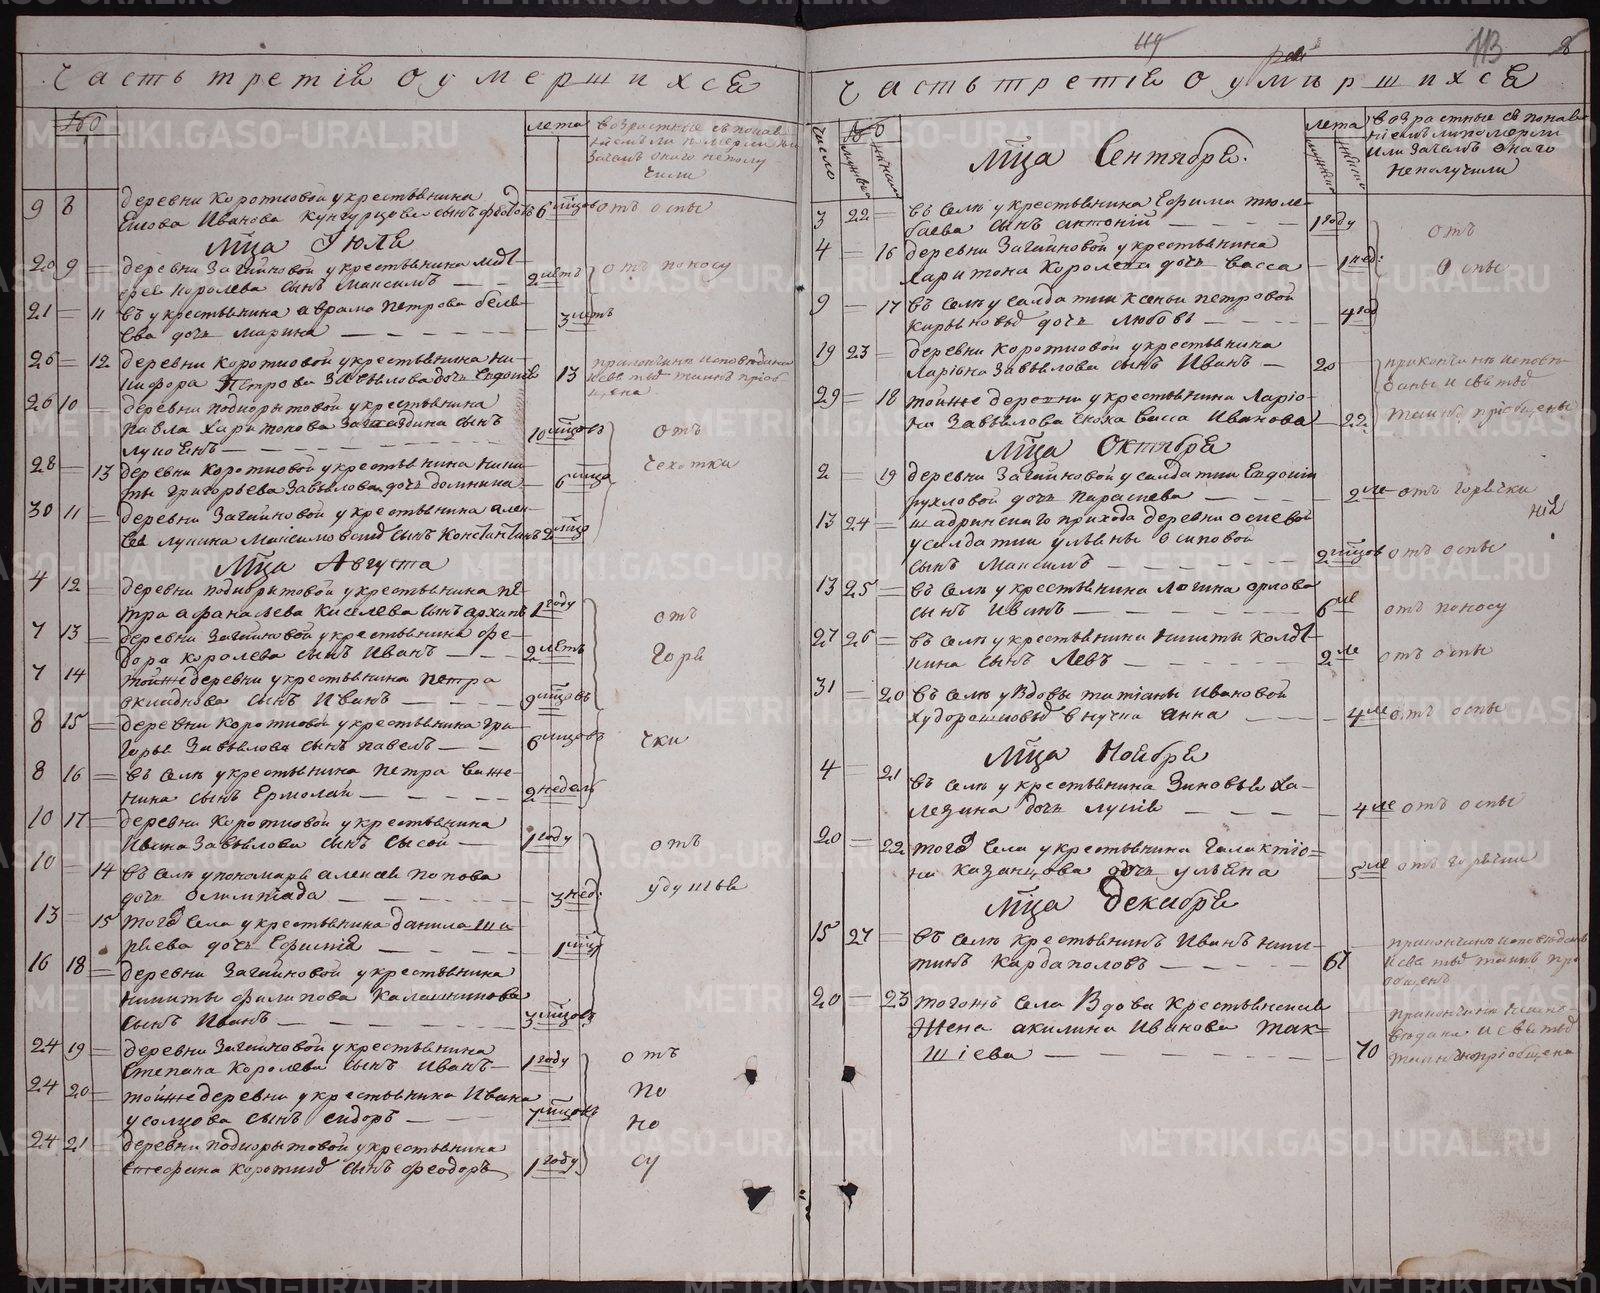 Часть третія о умершихся
лета
возрастные съ покая
ніемъ ли померли или
зачемъ онаго неполу
чили
9 8 деревни Коротковой у крестьянина 6 мцовъ отъ оспы
 Емова Иванова Кунгурцова сынъ Федотъ
Мца Іюля
20 9 = деревни Загайновой у крестьянина Мат- 2 летъ отъ поносу
ѳея Королева сынъ Максимъ
21 = 11 въ у крестьянина Аврама Петрова Беля- 3 летъ
ева дочь Марина
26 = 12 деревни Коротковой у крестьянина Ни- 13
кифора Петрова Завьялова дочь Евдокія
26 10 = деревни подкорытовой у крестьянина
Павла Харитонова сынъ 10 мцовъ отъ
Лупсенъ
28 = 13 деревни Коротковой у крестьянина Ники- чехотки
ты Григорьева Завьялова дочь Домнина 6 мца
30 11 = деревни Загайновой у крестьянина Алек-
сея Лукина Максимовскид сынъ Константинъ 2 мца
Мца Августа
4 12 деревни подкорытовой у крестьянина Пе-
тра Афанасьева Киселева сынъ Архипъ 1 году отъ
7 13 = деревни Загайновой у крестьянина Фе- Горя
дора Королева сынъ Иванъ 2 летъ
7 14 тойже деревни у крестьянина Петра
Окиаднова сынъ Иванъ 9 мцовъ
8 15 = деревни Коротковой у крестьянина Гри-
горья Завьялова сынъ Павелъ 6 мцовъ чки
8 16 = въ селе у крестьянина Петра Важе-
нина сынъ Ермолай 2 недели
10 17 = деревни Коротковой у крестьянина
Ивана Завьялова сынъ Сысой 1 году отъ
10 = 14 въ селе у пономаря Алексея Попова
дочь Олимпіада 3 нед: удушья
13 = 15 того села у крестьянина Данила Ша-
рыева дочь Ефимія 1 мца
16 18 = деревни Загайновой у крестьянина
Никиты Филипова Калашникова
сынъ Иванъ 3 мцовъ
24 19 = деревни Загайновой у крестьянина
Степана Королева сынъ Иванъ 1 году отъ
24 20 = тойже деревни у крестьянина Ивана по
Усолцова сынъ Сидоръ 7 мцовъ но
24 21 = деревни подкорытовой у крестьянина
Стефана Короткид сынъ Феодоръ 1 году су
113
Часть третія о умершихся
число
лета
возрастные съ покая
ніемъ ли померли
или зачемъ онаго
неполучили
Мца Сентября.
3 22 = въ селе у крестьянина Ефима Тюле-
баева сынъ Антоній 1 году отъ
4 = 16 деревни Загайновой у крестьянина
Харитона Королева дочь Васса 1 нед: Оспы
9 = 17 въ селе у салдатки Ксеньи Петровой
дочь Любовь 4 год
19 23 = деревни Коротковой у крестьянина
Ларіона Завьялова сынъ Иванъ 20
29 = 18 тойже деревни у крестьянина Ларіо-
на Завьялова сноха Васса Иванова 22
Мца Октября
2 = 19 деревни Загайновой у салдатки Евдокіи
Пухловой дочь Параскева 2 ле отъ горячки
13 24 = шадринскаго прихода деревни Осиевой
у салдатки Ульяны Осиповой
сынъ Максимъ 2 мцовъ отъ оспы
13 25 = въ селе у крестьянина Логина Орлова
сынъ Иванъ 6 ле отъ поносу
27 26 = въ селе у крестьянина Никиты Колдя-
кина сынъ Левъ 2 ле отъ оспы
31 = 20 въ селе у вдовы Татіаны Ивановой
Худорошковыд внучка Анна 4 ле отъ оспы
Мца Ноября
4 = 21 въ селе у крестьянина Зиновья Ха-
лезина дочь Лукія 4 ле отъ оспы
20 = 22 того села у крестьянина Галактіо=
на Казанцова дочь Ульяна 5 ле отъ горячки
Мца Декабря
15 27 = въ селе крестьянинъ Иванъ Ники-
тинъ Кардаполовъ 67
20 = 23 тогожъ села Вдова крестьянская
жена Акилина Иванова Так=
шіева 70